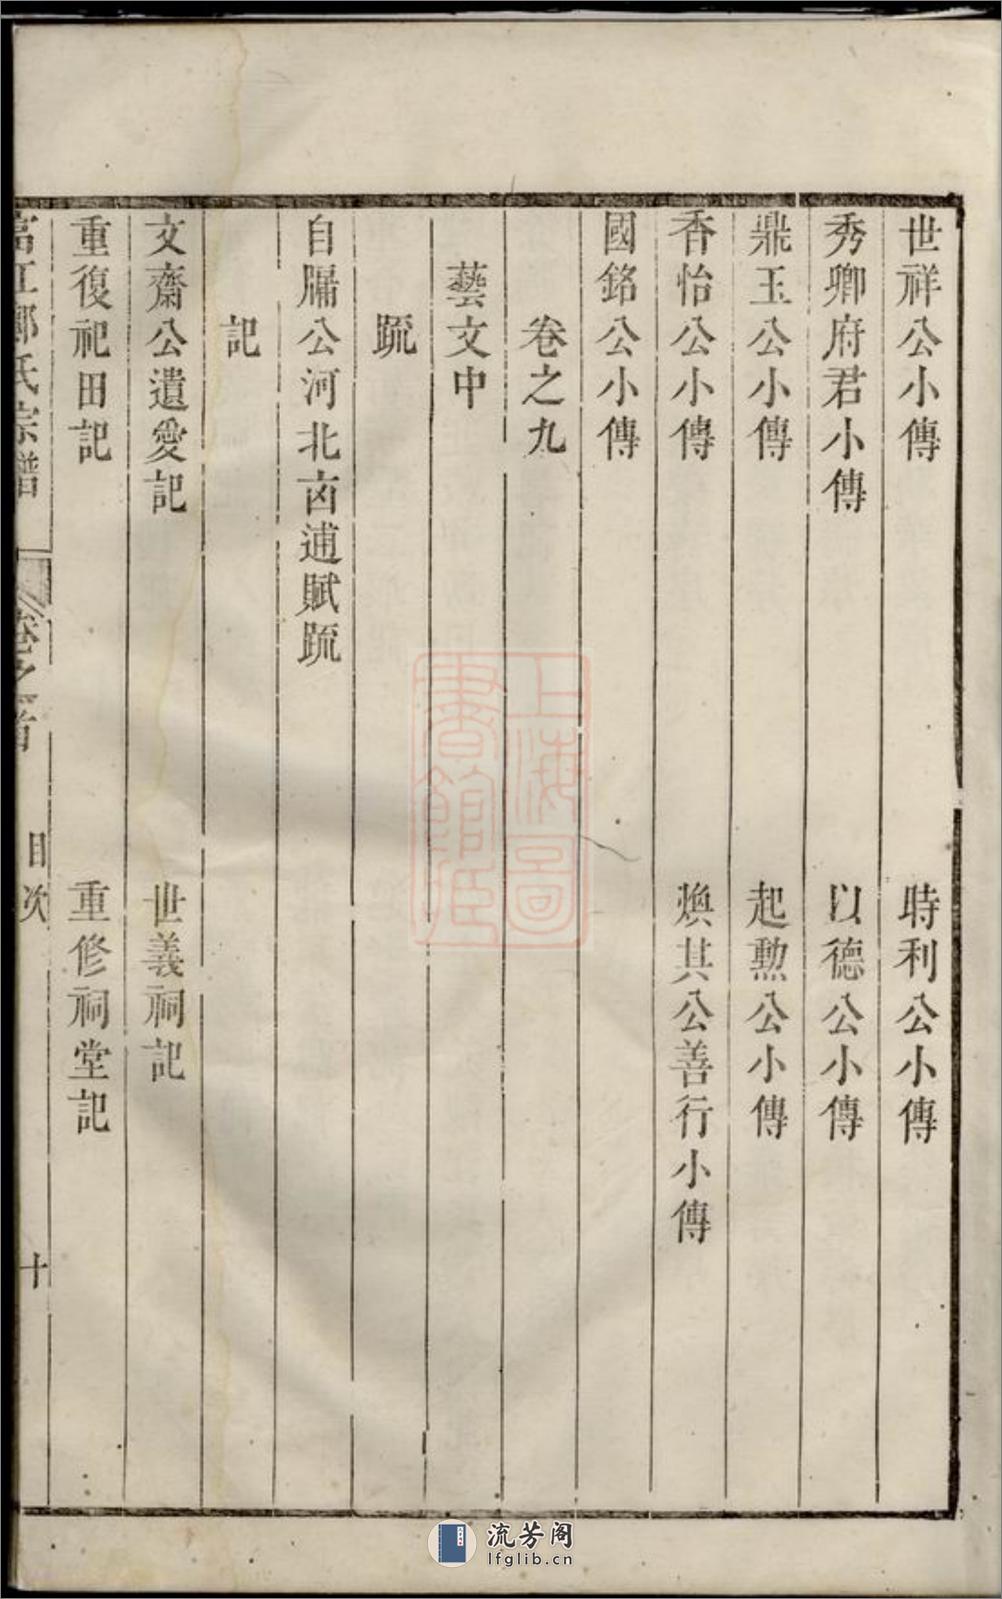 世祥公小傳 時利公小傳
秀卿府君小傳 以德公小傳
鼎玉公小傳 起勲公小傳
香怡公小傳 煥其公善行小傳
國銘公小傳
卷之九
藝文中
䟽
自牖公河北卤逋賦䟽
記
文齋公遺愛記 世義祠記
重復祀田記 重修祠堂記
富江鄭氏宗譜 卷之首 目次 十
上海圖
書館藏
流芳阁
lfglib.cn